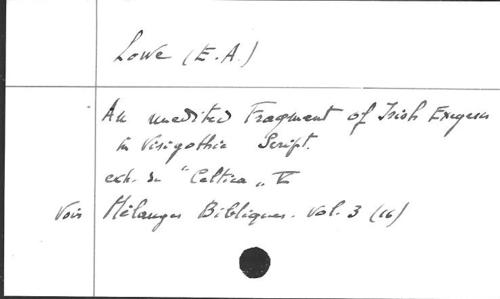 Lowe (E.A.)
An unedited Fragment of Irish Exegesis
in Visigothic Script.
ext. du "Celtica„ V
Voir Mélanges Bibliques. vol. 3 (16)